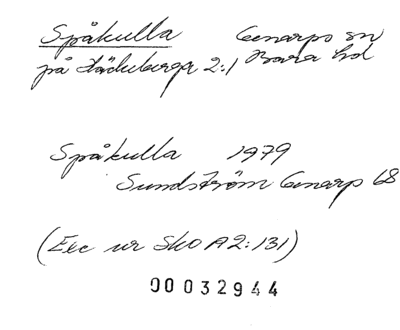 Spåkulla Genarps sn
på Häckeberga 2:1 Bara hd
Spåkulla 1979
Sundström Genarp 68
(Exc ur SkO A2:131)
00032944